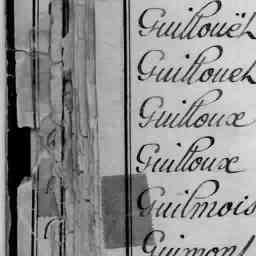 Guillouël
Guillouel
Guilloux
Guilloux
Guilmois
Guimont